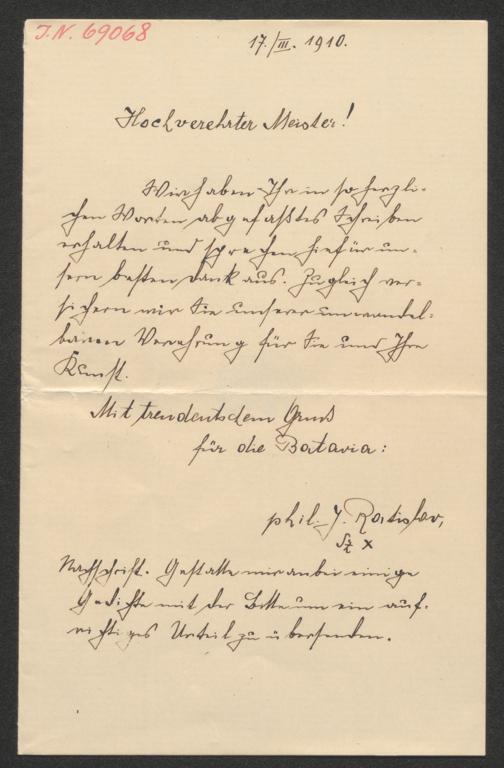 J.N. 69068
17./III. 1910.
Hochverehrter Meister!
Wir haben Ihr in so herzli-
chen Worten abgefaßtes Schreiben
erhalten und sprechen hiefür un-
sern besten Dank aus. Zugleich ver-
sichern wir Sie unserer unwandel-
baren Verehrung für Sie und Ihre
Kunst.
Mit treudeutschem Gruß
für die Batavia:
phil. J. Ratislav,
x
Nachschrift. Gestatte mir anbei einige
Gedichte mit der Bitte um ein auf-
richtiges Urteil zu übersenden.